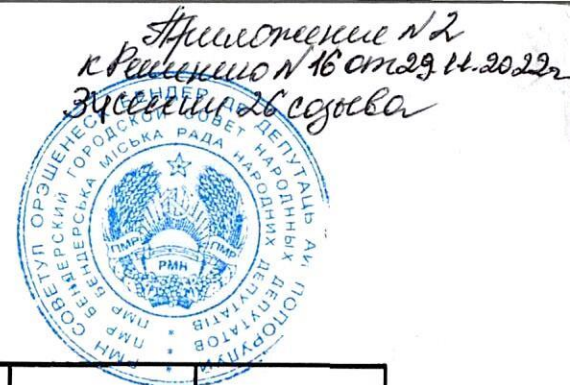 Приложение N2
к Решению N 16 от 29.11.2022г
3 сессии 26 созыва
РМН СОВЕТУЛ ОРЭШЕНЕСК БЕНДЕР ДЕ ДЕПУТАЦЬ АИ ПОПОРУЛУЙ
ПМР БЕНДЕРСКИЙ ГОРОДСКОЙ СОВЕТ НАРОДНЫХ ДЕПУТАТОВ
ПМР БЕНДЕРСЬКА МІСЬКА РАДА НАРОДНИХ ДЕПУТАТІВ
ПМР ПМР
РМН